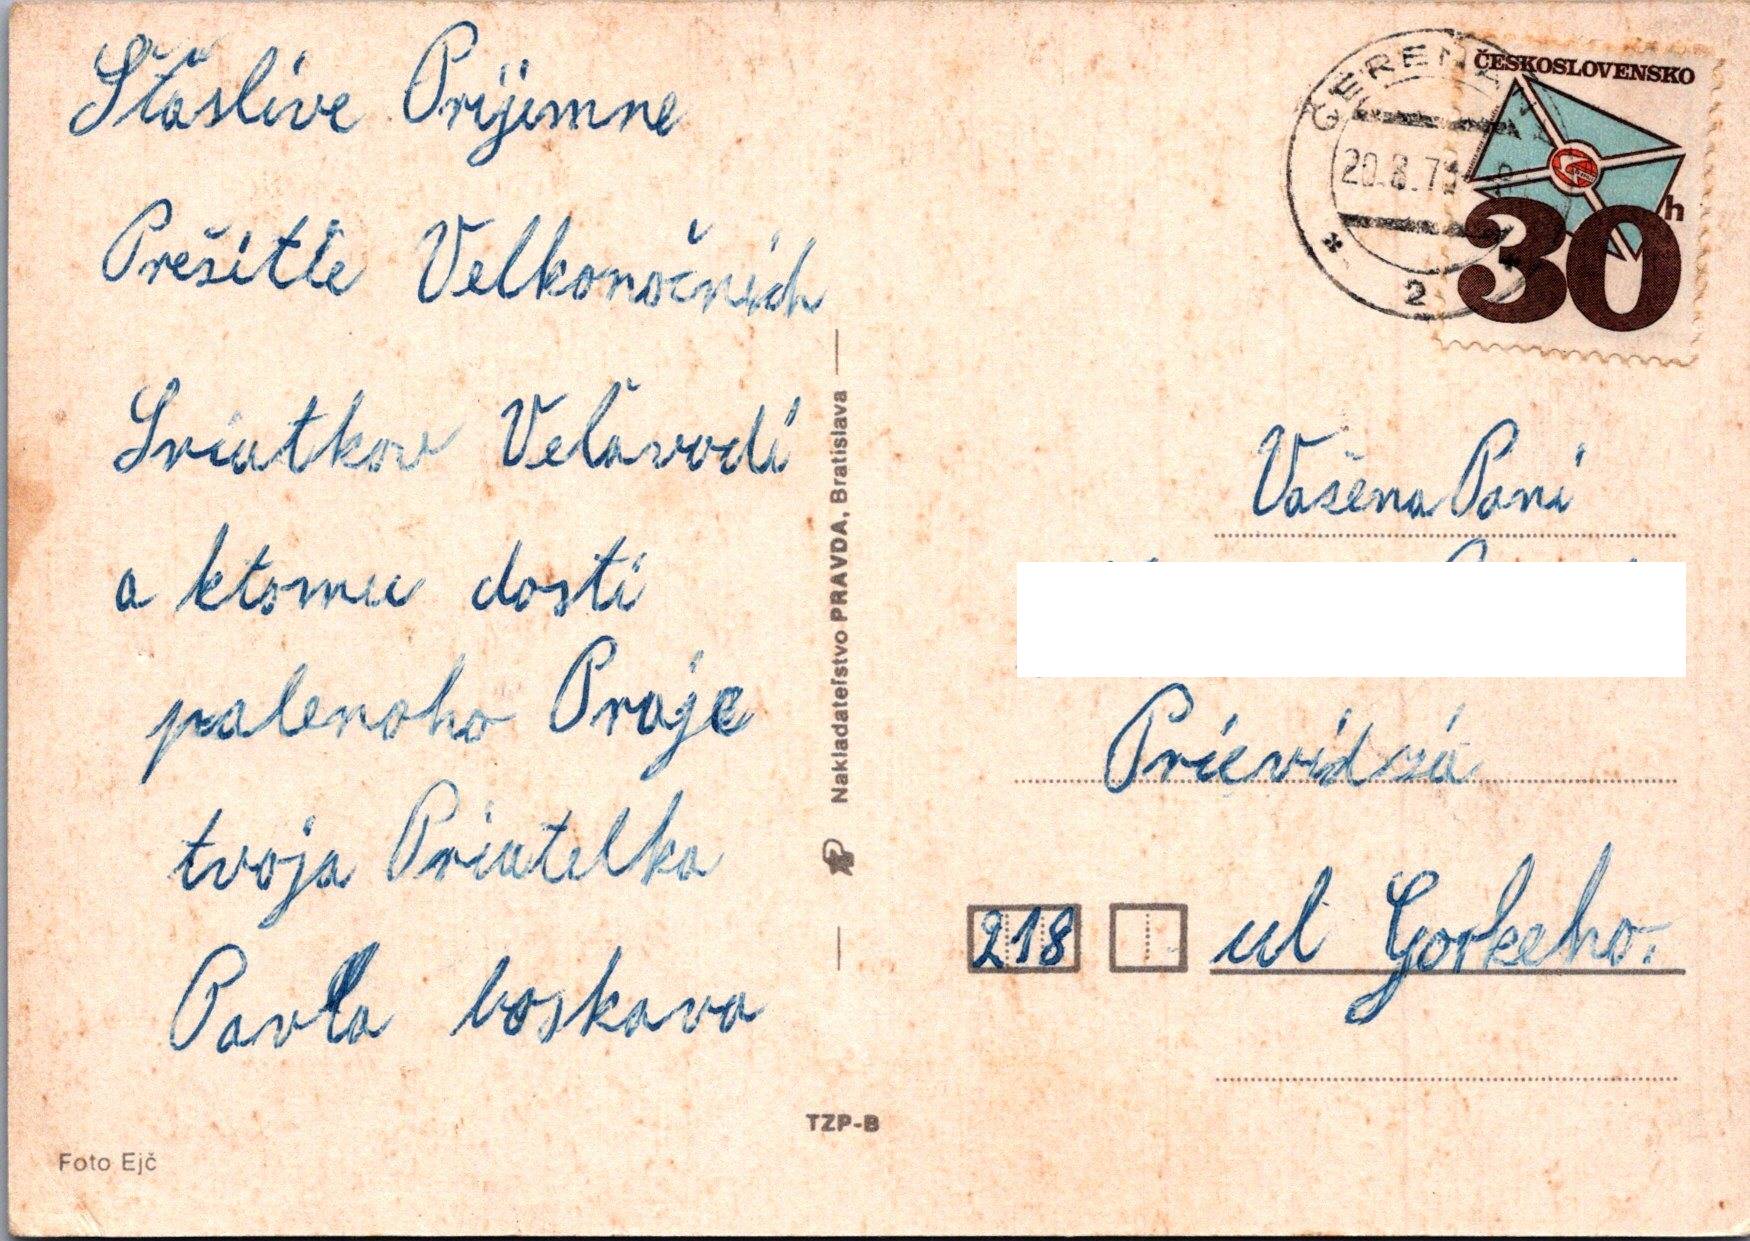 Šťaslive Prijemne
Prešitie Velkonočnich
Sviatkov Velavodi
a ktomu dosti
palenoho Praje
tvoja Priatelka
Pavla boskava
Foto Ejč
TZP-B
Nakladateľstvo PRAVDA, Bratislava
ČESKOSLOVENSKO
30 h
20.3.7
2
Vašena Pani
Prievidza
218
ul Gorkeho.